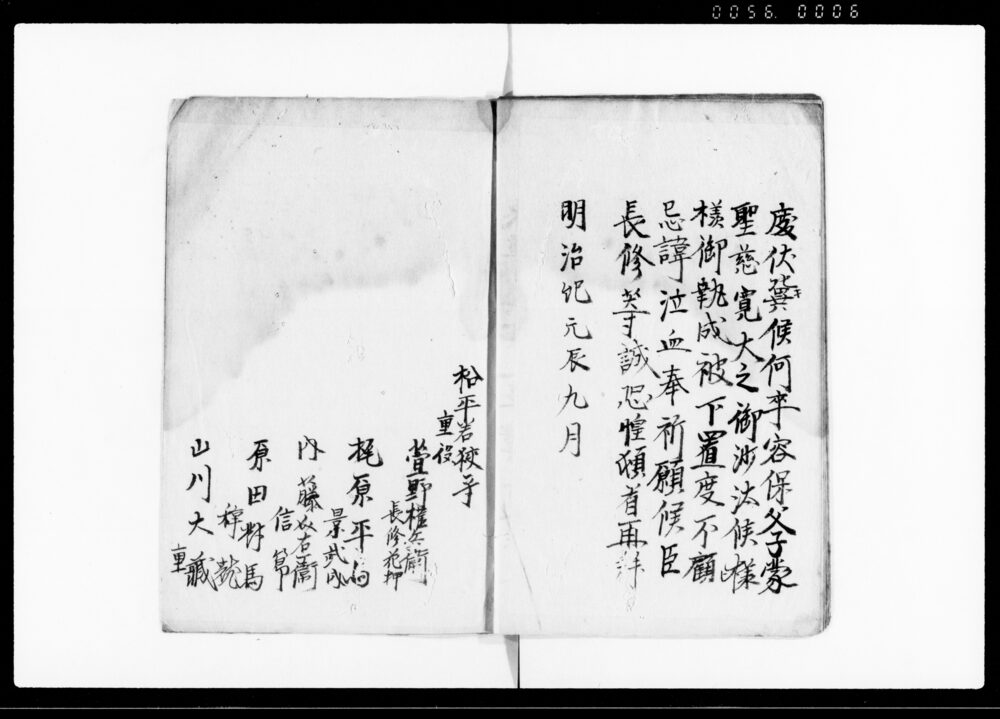 0056.0006
處伏冀候何卒容保父子蒙
聖慈寛大之御沙汰候様
様御執成被下置度不顧
忌諱泣血奉祈願候臣
長修等誠恐惶頓首再拝
明治紀元辰九月
松平若狭守
重役
萱野権兵衛
長修花押
梶原平馬
景武
内藤介右衛
信節
原田対馬
種龍
山川大蔵
重